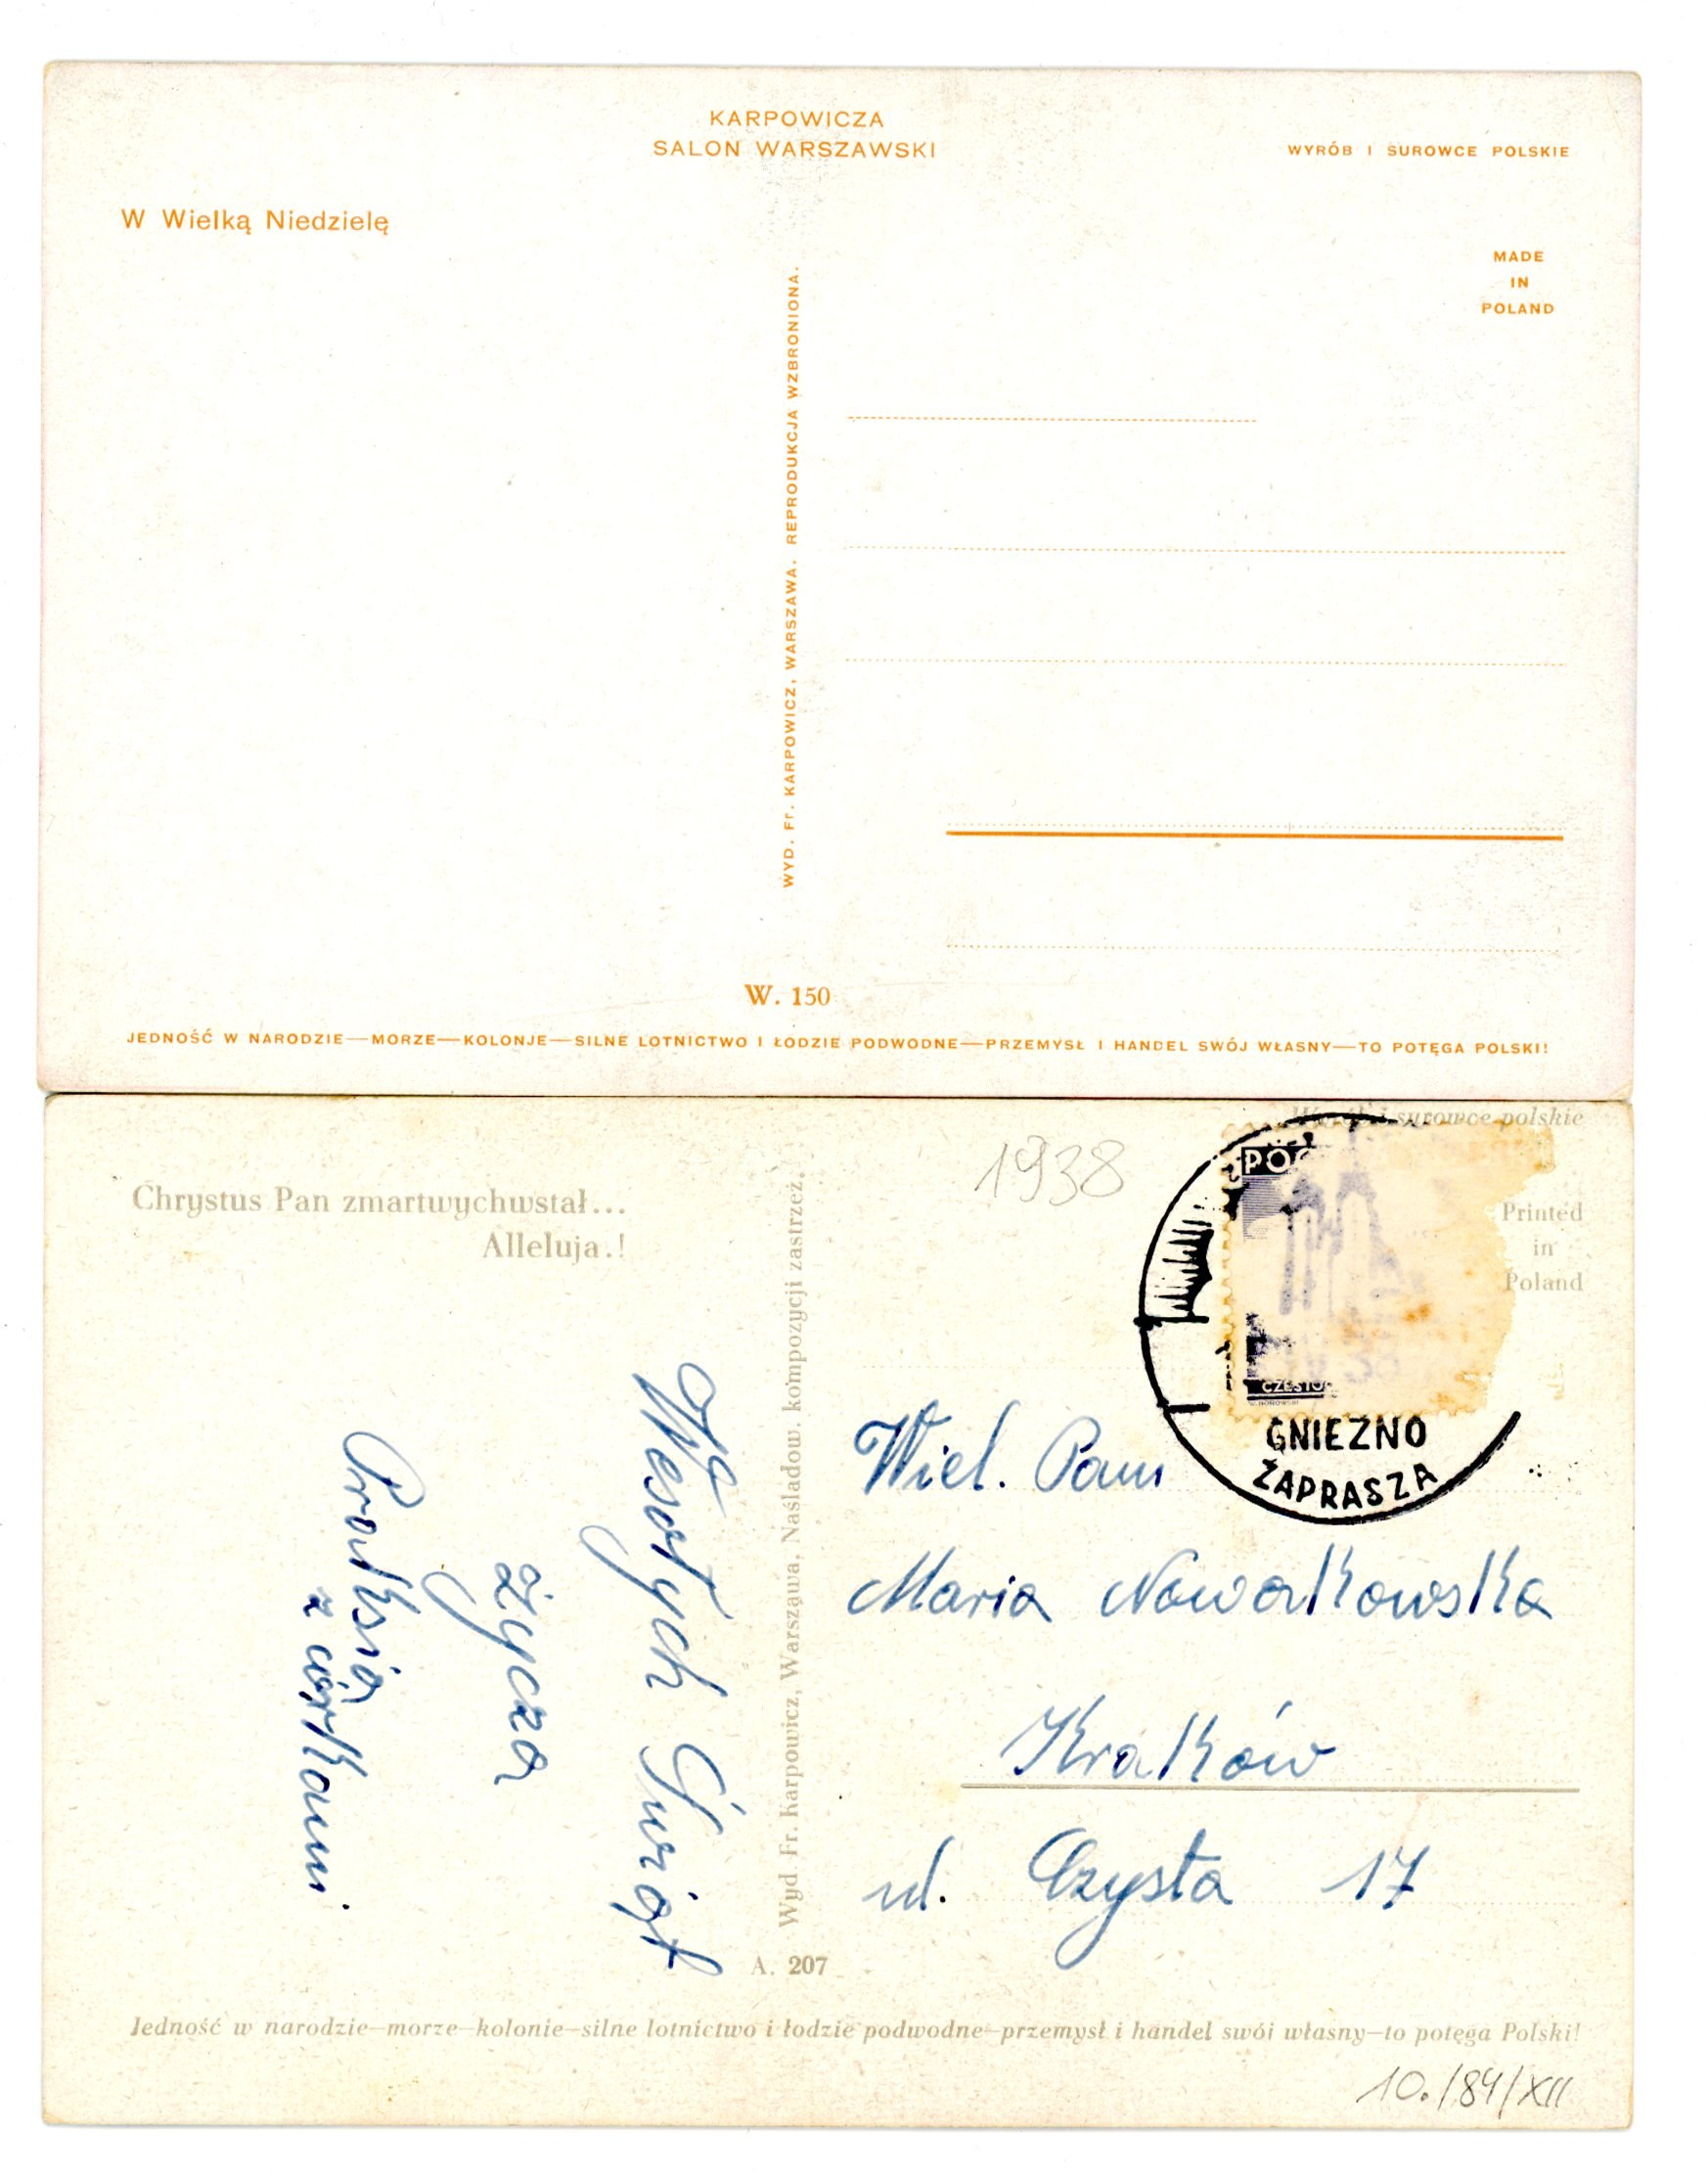 KARPOWICZA
SALON WARSZAWSKI
WYRÓB I SUROWCE POLSKIE
W Wielką Niedzielę
MADE
IN
POLAND
WYD. Fr. KARPOWICZ, WARSZAWA. REPRODUKCJA WZBRONIONA.
W. 150
JEDNOŚĆ W NARODZIE—MORZE—KOLONJE—SILNE LOTNICTWO I ŁODZIE PODWODNE—PRZEMYSŁ I HANDEL SWÓJ WŁASNY—TO POTĘGA POLSKI!
i surowce polskie
1938
Chrystus Pan zmartwychwstał...
Alleluja.!
Printed
in
Poland
POC
CZĘSTO
GNIEZNO
ZAPRASZA
Wesołych Świąt
życzą
z córkami
Wyd Fr. Karpowicz, Warszawa, Naśladow. kompozycji zastrzeż.
Wiel. Pani
Maria Nowakowska
Kraków
ul. Czysta 17
A. 207
Jedność w narodzie—morze—kolonie—silne lotnictwo i łodzie podwodne—przemysł i handel swój własny—to potęga Polski!
10./84/XII